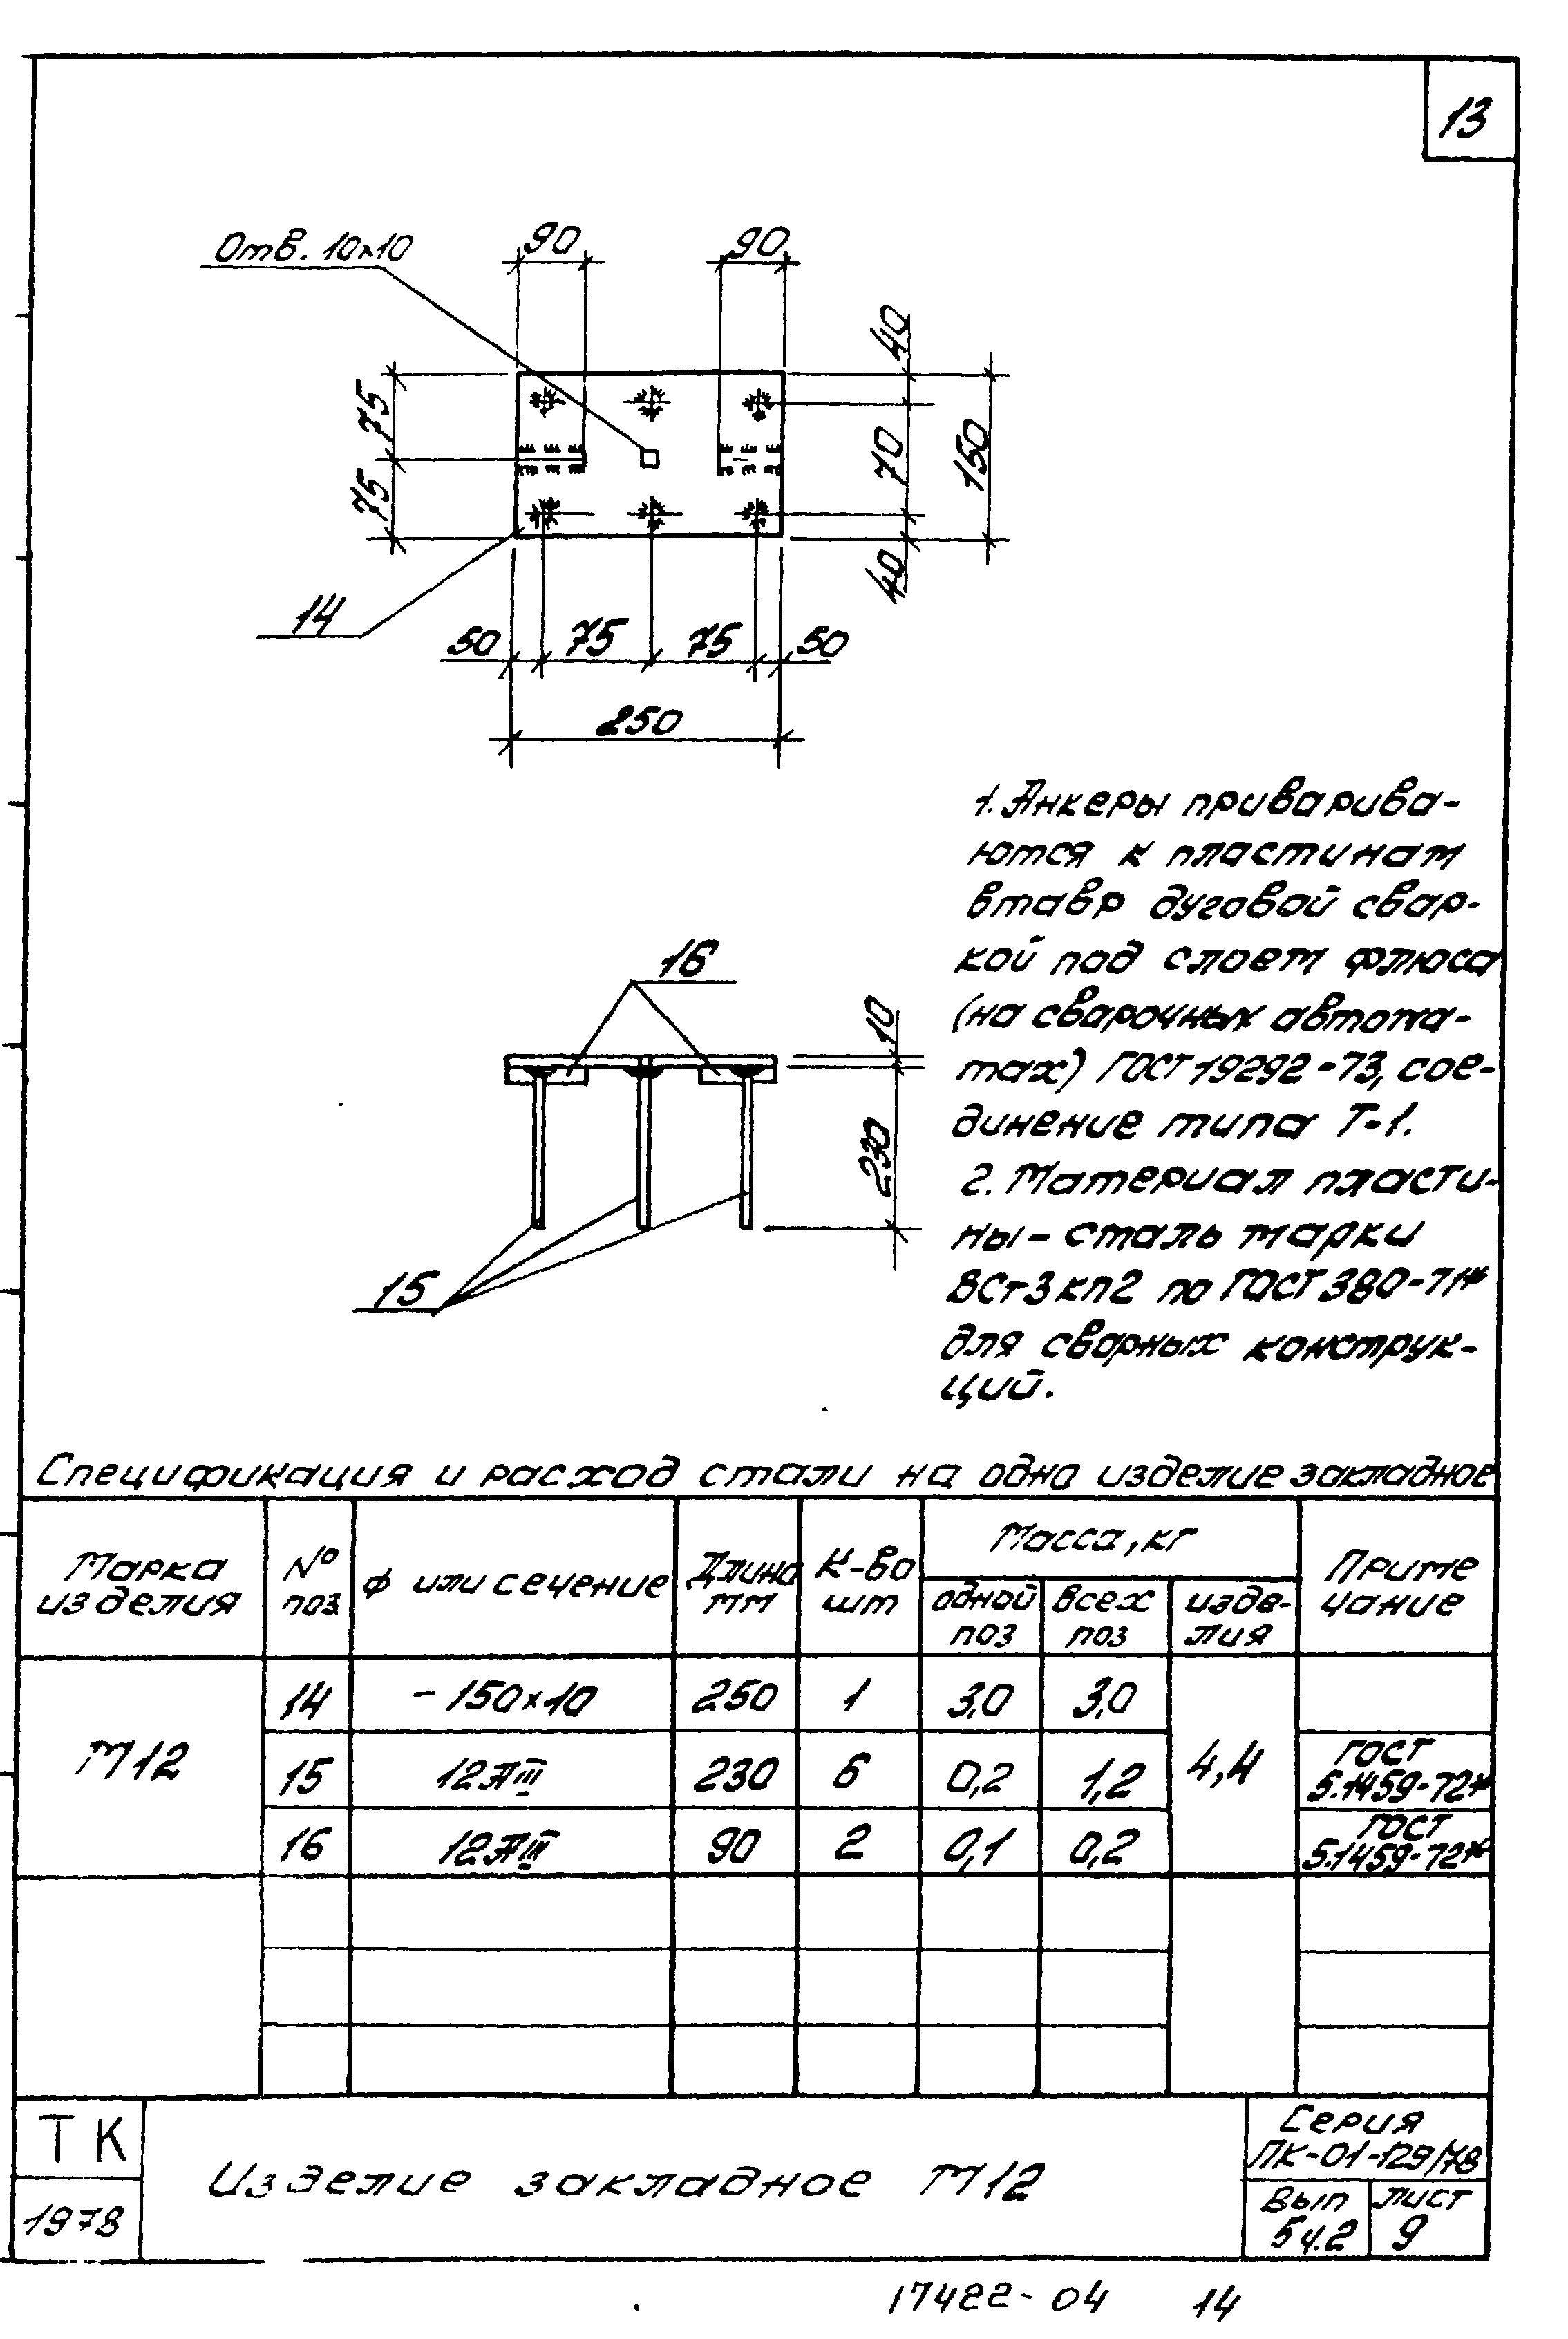 13
Отв. 10×10
90
90
40
75
70
150
75
40
14
50 75 75 50
250
1. Анкеры приварива-
ются к пластинам
втавр дуговой свар-
кой под слоем флюса
(на сварочных автома-
тах) ГОСТ 19292-73, сое-
динение типа Т-1.
2. Материал пласти-
ны - сталь марки
ВСт3кп2 по ГОСТ 380-71*
для сварных конструк-
ций.
16
10
230
15
Спецификация и расход стали на одно изделие закладное
Марка изделия № поз. φ или сечение Длина мм К-во шт Масса, кг Приме чание
одной поз всех поз изде-лия
М12 14 - 150×10 250 1 3,0 3,0 4,4
15 12АIII 230 6 0,2 1,2 ГОСТ 5.1459-72*
16 12АIII 90 2 0,1 0,2 ГОСТ 5.1459-72*
ТК
1978
Изделие закладное М12
Серия
ПК-01-129/78
Вып 5 ч.2
Лист 9
17422-04 14